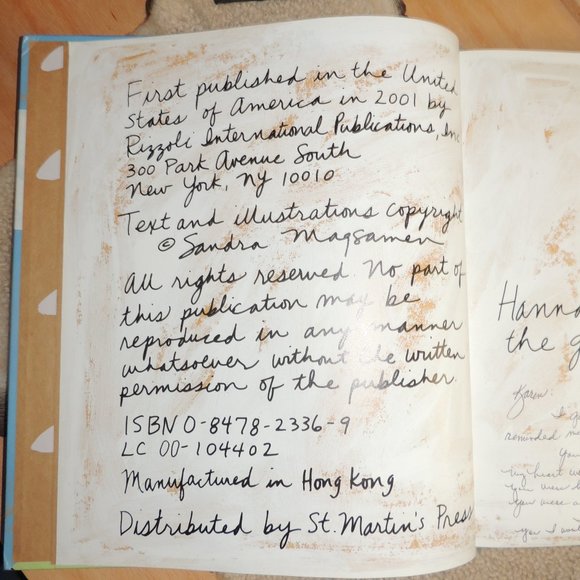 First published in the United
States of America in 2001 by
Rizzoli International Publications, Inc
300 Park Avenue South
New York, NY 10010
Text and illustrations copyright
© Sandra Magsamen
All rights reserved. No part of
this publication may be
reproduced in any manner
whatsoever without the written
permission of the publisher.
ISBN 0-8478-2336-9
LC 00-104402
Manufactured in Hong Kong
Distributed by St. Martin's Press
Hanna
the g
Karen:
I g
reminded m
you
my heart w
you were b
you were a
you I wa